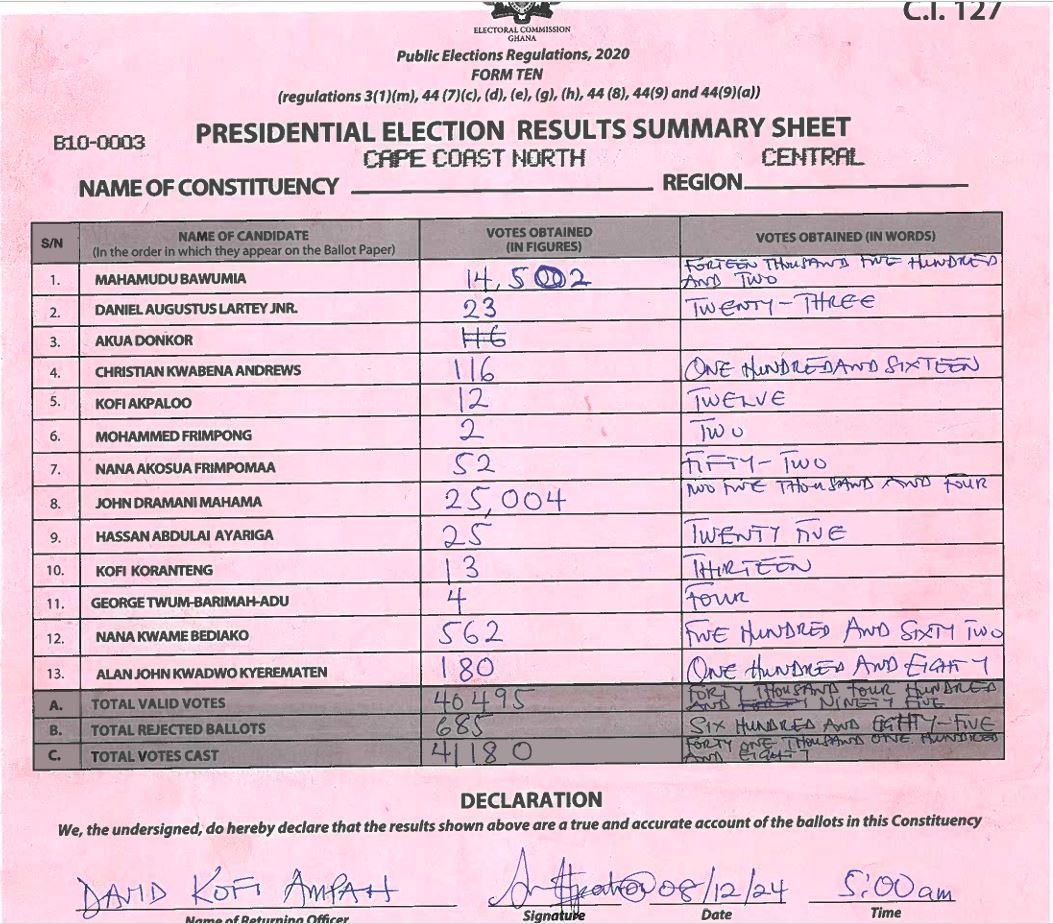 C.I. 127
ELECTORAL COMMISSION
GHANA
Public Elections Regulations, 2020
FORM TEN
(regulations 3(1)(m), 44 (7)(c), (d), (e), (g), (h), 44 (8), 44(9) and 44(9)(a))
B10-0003 PRESIDENTIAL ELECTION RESULTS SUMMARY SHEET
CAPE COAST NORTH CENTRAL
NAME OF CONSTITUENCY REGION
S/N NAME OF CANDIDATE (In the order in which they appear on the Ballot Paper) VOTES OBTAINED (IN FIGURES) VOTES OBTAINED (IN WORDS)
1. MAHAMUDU BAWUMIA 14,502 FORTEEN THOUSAND FIVE HUNDRED AND TWO
2. DANIEL AUGUSTUS LARTEY JNR. 23 TWENTY-THREE
3. AKUA DONKOR
4. CHRISTIAN KWABENA ANDREWS 116 ONE HUNDRED AND SIXTEEN
5. KOFI AKPALOO 12 TWELVE
6. MOHAMMED FRIMPONG 2 TWO
7. NANA AKOSUA FRIMPOMAA 52 FIFTY-TWO
8. JOHN DRAMANI MAHAMA 25,004 FIVE THOUSAND AND FOUR
9. HASSAN ABDULAI AYARIGA 25 TWENTY FIVE
10. KOFI KORANTENG 13 THIRTEEN
11. GEORGE TWUM-BARIMAH-ADU 4 FOUR
12. NANA KWAME BEDIAKO 562 FIVE HUNDRED AND SIXTY TWO
13. ALAN JOHN KWADWO KYEREMATEN 180 ONE HUNDRED AND EIGHTY
A. TOTAL VALID VOTES 40495 FORTY THOUSAND FOUR HUNDRED AND NINETY FIVE
B. TOTAL REJECTED BALLOTS 685 SIX HUNDRED AND EIGHTY-FIVE
C. TOTAL VOTES CAST 41180 FORTY ONE THOUSAND ONE HUNDRED AND EIGHTY
DECLARATION
We, the undersigned, do hereby declare that the results shown above are a true and accurate account of the ballots in this Constituency
DAVID KOFI AMPAH 08/12/24 5:00am
Name of Returning Officer Signature Date Time